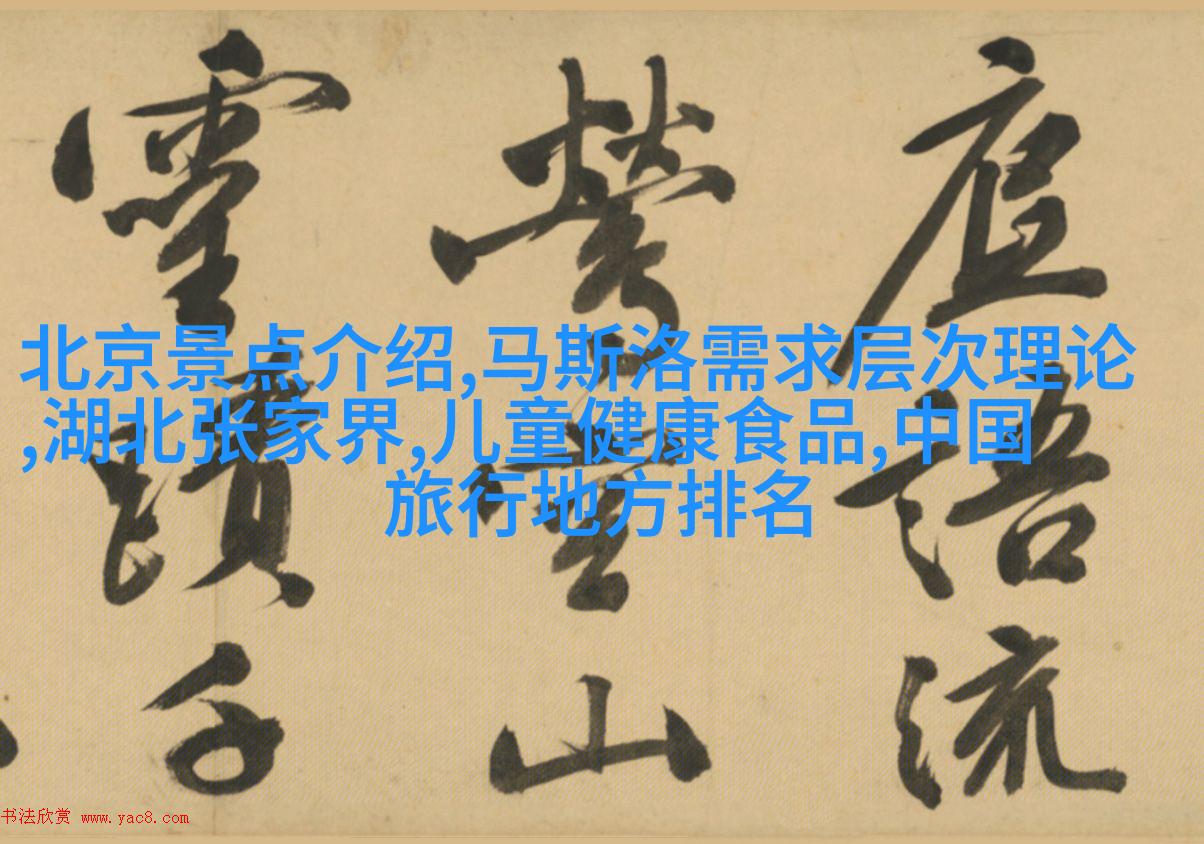 北京景点介绍,马斯洛需求层次理论
,湖北张家界,儿童健康食品,中国
旅行地方排名
語流
山
靈蹟千
书法欣赏 www.yac8.com